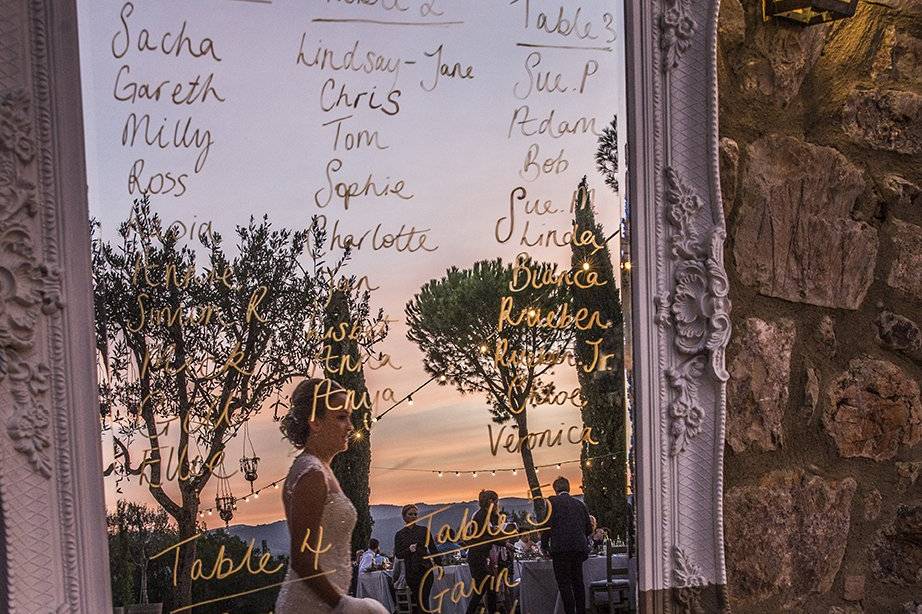 Sacha
Gareth
Milly
Ross
Annie
Simon R
Mark
Ella
Table 2
Lindsay-Jane
Chris
Tom
Sophie
Charlotte
Jan
Lisbet
Anna
Anya
Table 3
Sue.P
Adam
Bob
Sue.M
Linda
Bianca
Raeben
Jr.
Chloe
Veronica
Table 4
Table 5
Gavin